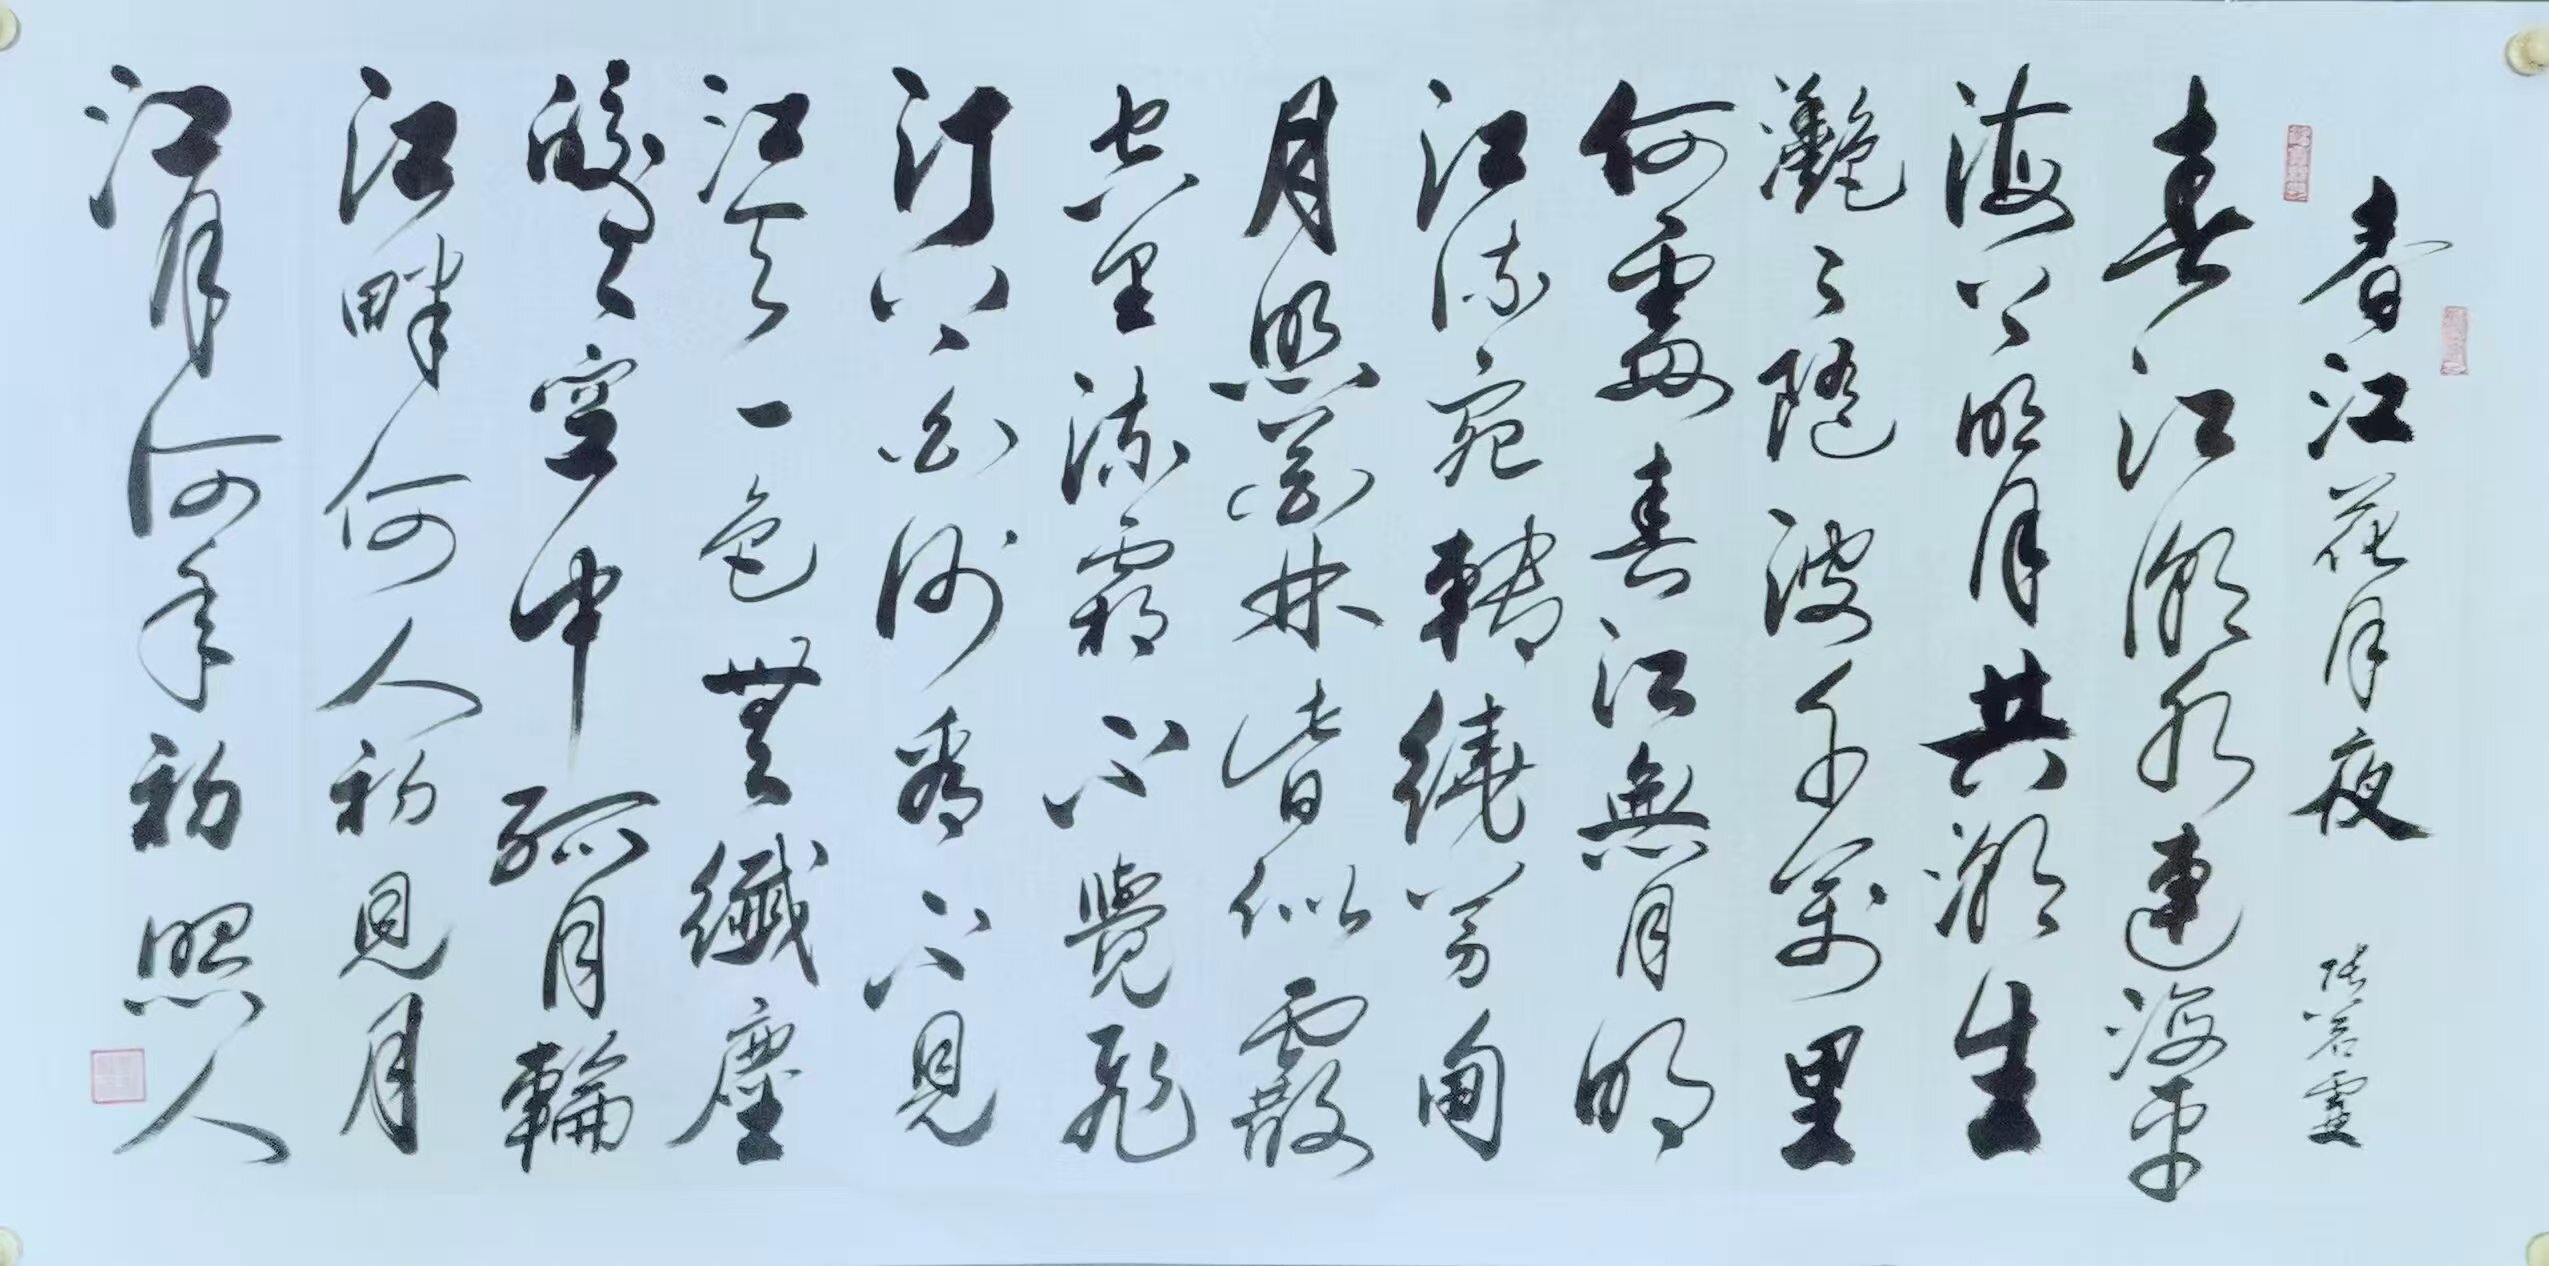 春江花月夜 張若靈
春江潮水連海平
海上明月共潮生
灩灩隨波千萬里
何處春江無月明
江流宛轉繞芳甸
月照花林皆似霰
空里流霜不覺飛
汀上白沙看不見
江天一色無纖塵
皎皎空中孤月輪
江畔何人初見月
江月何年初照人